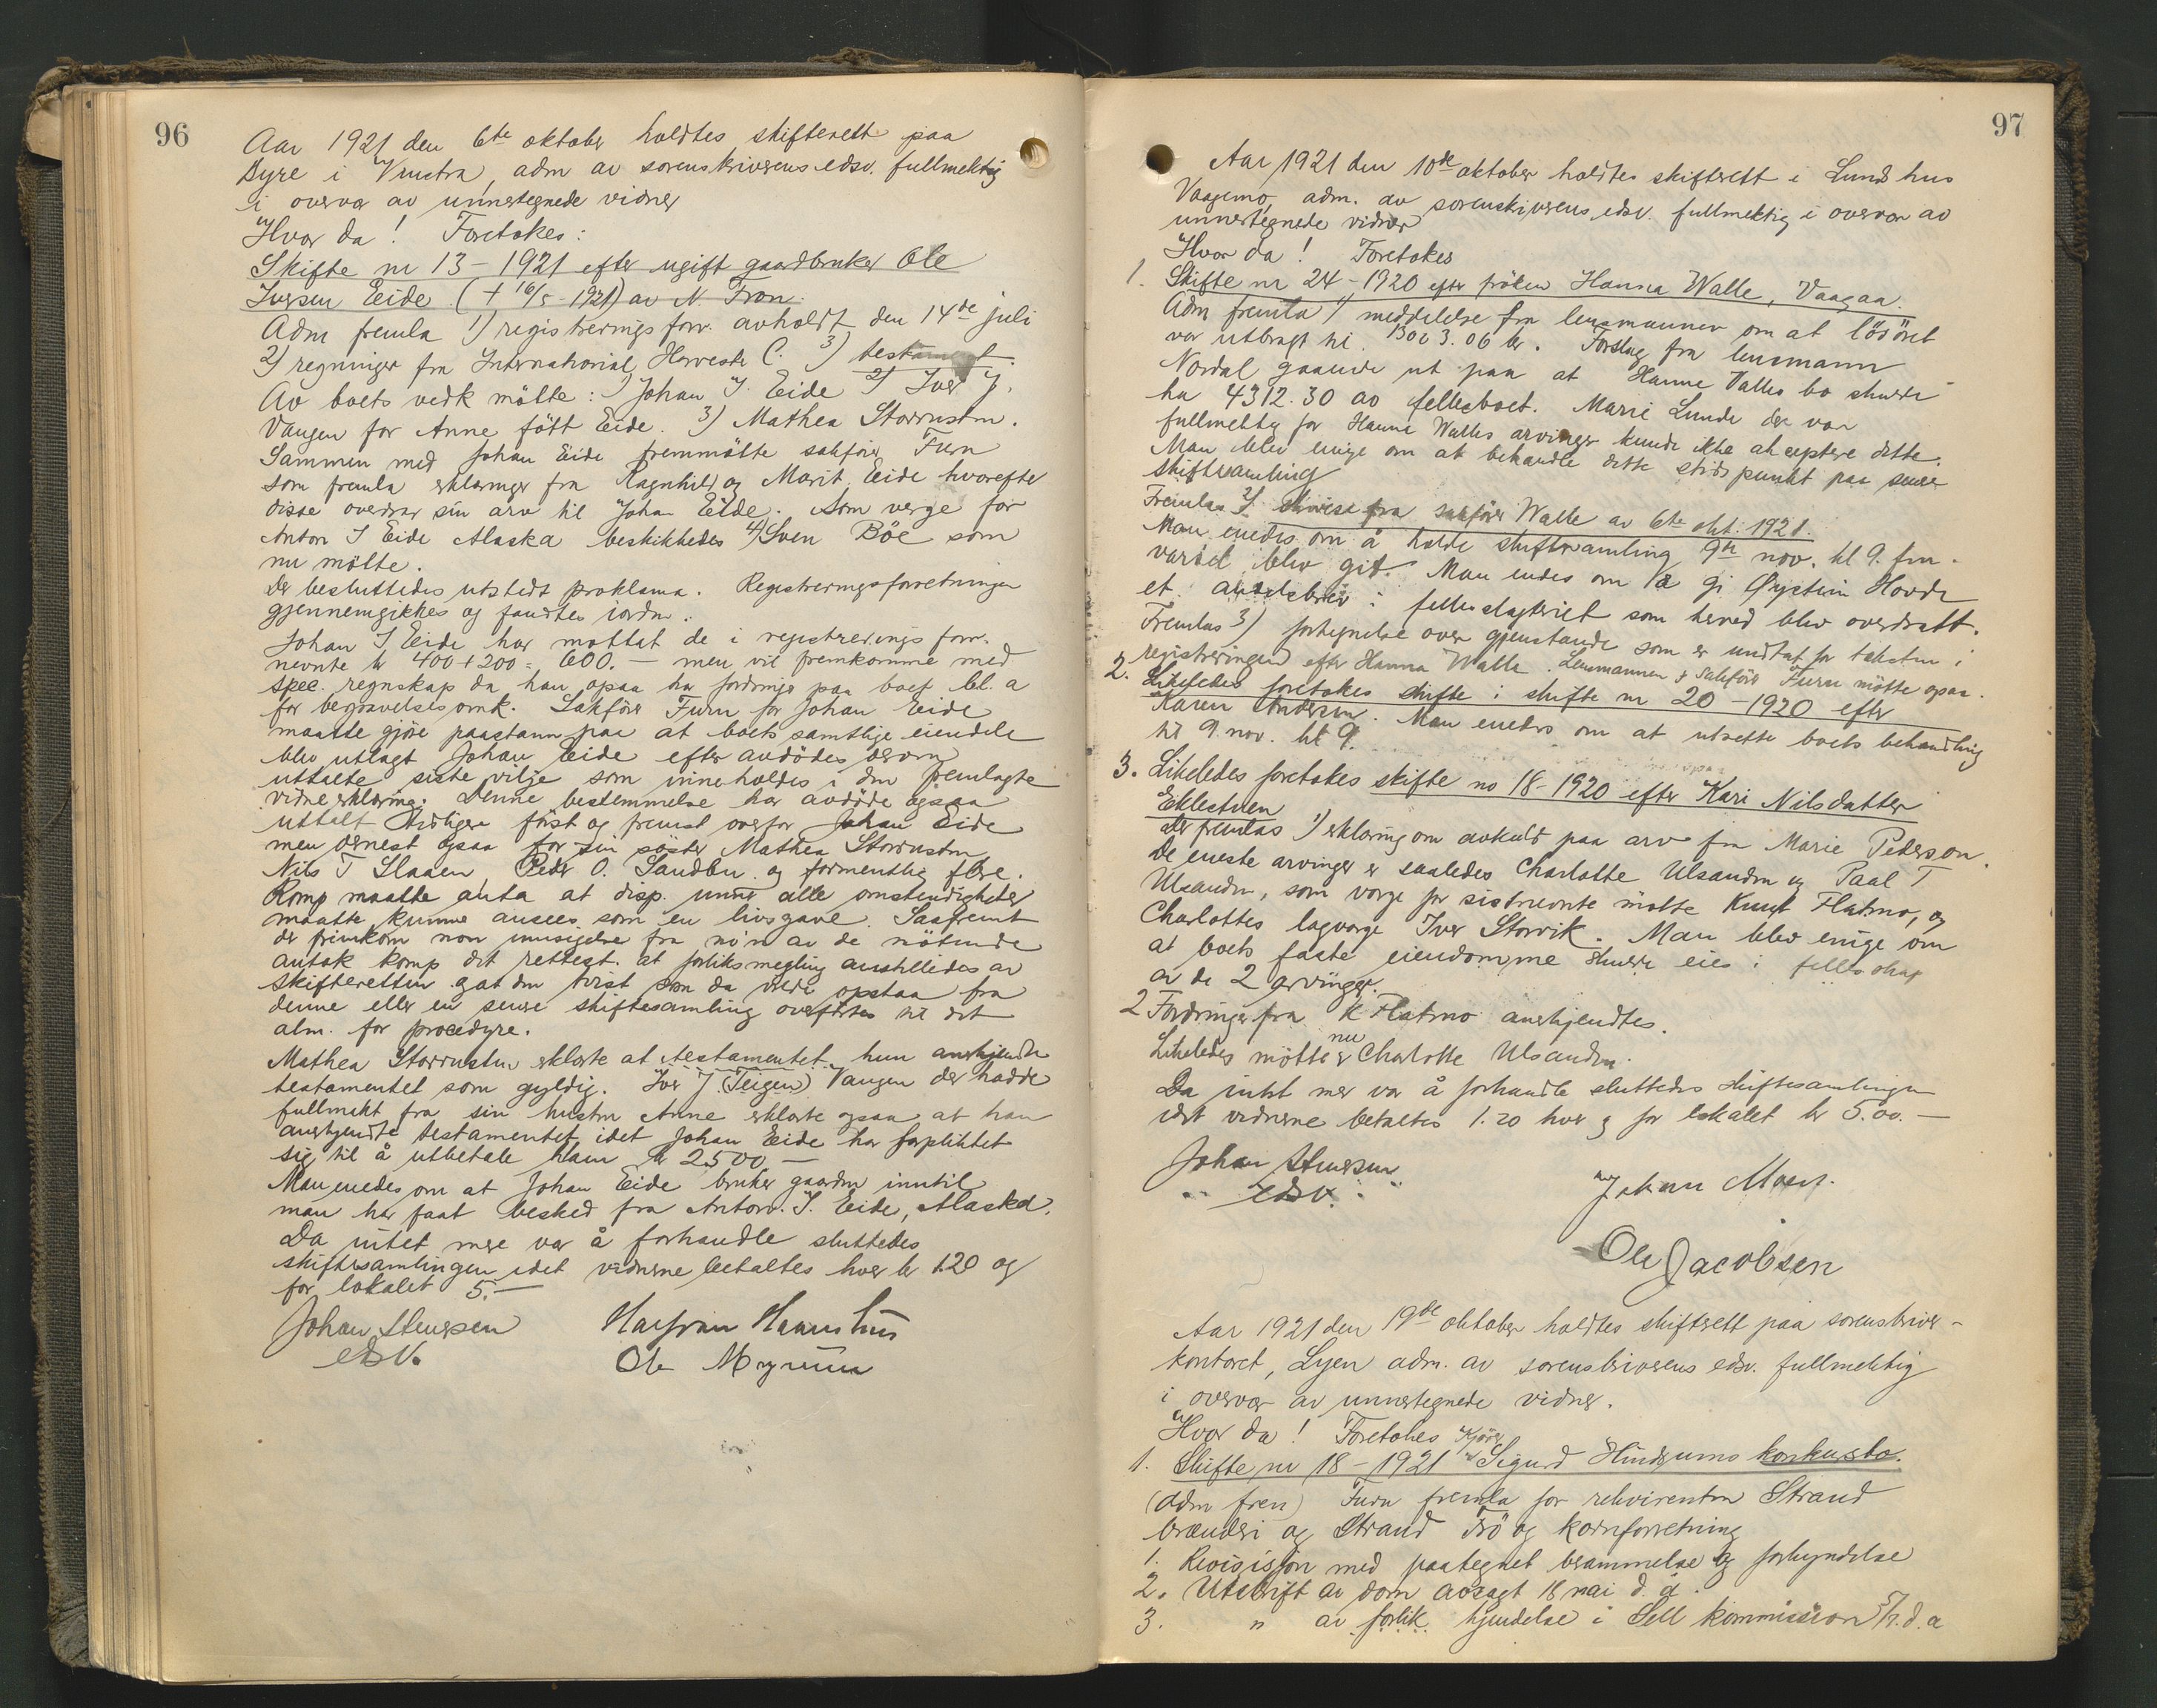 96
Aar 1921 den 6te oktober holdtes skifterett paa
Byre i Vinstra, adm av sorenskriverens edsv. fullmektig
i overvær av unnertegnede vidner
Hvor da! Foretokes:
Skifte nr 13 - 1921 efter ugift gaardbruker Ole
Iversen Eide († 16/5 - 1921) av N. Fron.
Adm fremla 1) registreringsforr. avholdt den 14de juli
2) regninger fra International Harvester C. 3) testament.
Av boets vedk mötte: 1) Johan I. Eide 2) Iver J.
Vangen for Anne fött Eide. 3) Mathea Storrusten.
Sammen med Johan Eide fremmötte sakförer Furu
som fremla erklæringer fra Ragnhild og Marit Eide hvorefter
disse overdrar sin arv til Johan Eide. Som verge for
Anton I Eide Alaska beskikkedes 4) Sven Böe som
nu mötte.
Der besluttedes utstedt proklama. Registreringsforretningen
gjennemgikkes og fandtes iorden.
Johan I Eide har mottat de i registrerings forr.
nevnte kr 400 + 200 = 600.- men vil fremkomme med
spec. regnskap da han ogsaa har fordringer paa boet bl. a
for begravelsesomk. Sakförer Furu for Johan Eide
maatte gjöre paastann paa at boets samtlige eiendele
blev utlagt Johan Eide efter avdödes derom
uttalte siste vilje som inneholdes i den fremlagte
vidneerklæring. Denne bestemmelse har avdöde ogsaa
uttalt tidligere först og fremst overfor Johan Eide
men dernest ogsaa for sin söster Mathea Storrusten
Nils T Slaaen, Peder O. Sandbu og formentlig flere.
Komp maatte anta at disp. unner alle omstendigheter
maatte kunne ansees som en livsgave. Saafremt
der fremkom noen innsigelse fra noen av de mötende
antok komp det rettest. at forliksmegling anstilledes av
skifteretten og at den tvist som da vilde opstaa fra
denne eller en senere skiftesamling overförtes til det
alm. for procedyre.
Mathea Storrusten erklærte at testamentet hun anerkjendte
testamentet som gyldig. Iver J (Teigen) Vangen der hadde
fullmakt fra sin hustru Anne erklærte ogsaa at han
anerkjendte testamentet idet Johan Eide har forpliktet
sig til å utbetale ham kr 2500 -
Man enedes om at Johan Eide bruker gaarden inntil
man har faat besked fra Anton. I. Eide, Alaska.
Da intet mere var å forhandle sluttedes
skiftesamlingen idet vidnerne betaltes hver kr 1.20 og
for lokalet 5.-
Johan Stenersen
edsv.
Ole
97
Aar 1921 den 10de oktober holdtes skifterett i Lunds hus
Vaagemo, adm. av sorenskriverens edsv. fullmektig i overvær av
unnertegnede vidner
Hvor da! Foretokes
1. Skifte nr 24 - 1920 efter fröken Hanna Walle, Vaagaa.
Adm fremla 1) meddelelse fra lensmannen om at lösöret
var utbragt til 13063.06 kr. Forslag fra lensmann
Nordal gaaende ut paa at Hanne Valles bo skulde
ha 4312.30 av fellesboet. Marie Lunde der var
fullmektig for Hanne Walles arvinger kunde ikke akceptere dette.
Man blev enige om at behandle dette stridspunkt paa senere
skiftesamling
Fremlas 2) skrivelse fra sakförer Walle av 6te okt. 1921.
Man enedes om å holde skiftesamling 9de nov. kl 9. fm.
varsel blev git. Man enedes om å gi Øystein Hovde
et andelsbrev i fellesslagteriet som herved blev overdratt.
Fremlas 3) fortegnelse over gjenstande som er undtat fra taksten i
registreringen efter Hanna Walle. Lensmannen & sakförer Furu mötte ogsaa.
2. Likeledes foretokes skifte i skifte nr 20 - 1920 efter
Karen Andersen. Man enedes om at utsette boets behandling
til 9. nov. kl 9.
3. Likeledes foretokes skifte no 18 - 1920 efter Kari Nilsdatter
Eiklestuen
Der fremlas 1) erklæring om avkald paa arv fra Marie Pederson.
De eneste arvinger er saaledes Charlotte Ulsanden og Paal T
Ulsanden, som verge for sistnevnte mötte Knut Flatmo, og
Charlottes lagverge Iver Storvik. Man blev enige om
at boets faste eiendomme skulde eies i fellesskap
av de 2 arvinger.
2 Fordringer fra K Flatmo anerkjendtes.
Likeledes mötte nu Charlotte Ulsanden.
Da intet mer var å forhandle sluttedes skiftesamlingen
idet vidnerne betaltes 1.20 hver og for lokalet kr 5.00.-
Johan Stenersen
edsv.
Johan Moen.
Ole Jacobsen
Aar 1921 den 19de oktober holdtes skifterett paa sorenskriver-
kontoret, Lyen adm. av sorenskriverens edsv. fullmektig
i overvær av unnertegnede vidner.
Hvor da! Foretokes
1. Skifte nr 18 - 1921 Kjörer Sigurd Hindrums konkursbo.
(Adm frem) Furu fremla for rekvirenten Strand
brænderi og Strand Frö og kornforretning
1. Rekvisisjon med paategnet berammelse og forkyndelse
2. Utskrift av dom avsagt 18 mai d. a.
3. " av forlik kjendelse i Sell kommission d. a